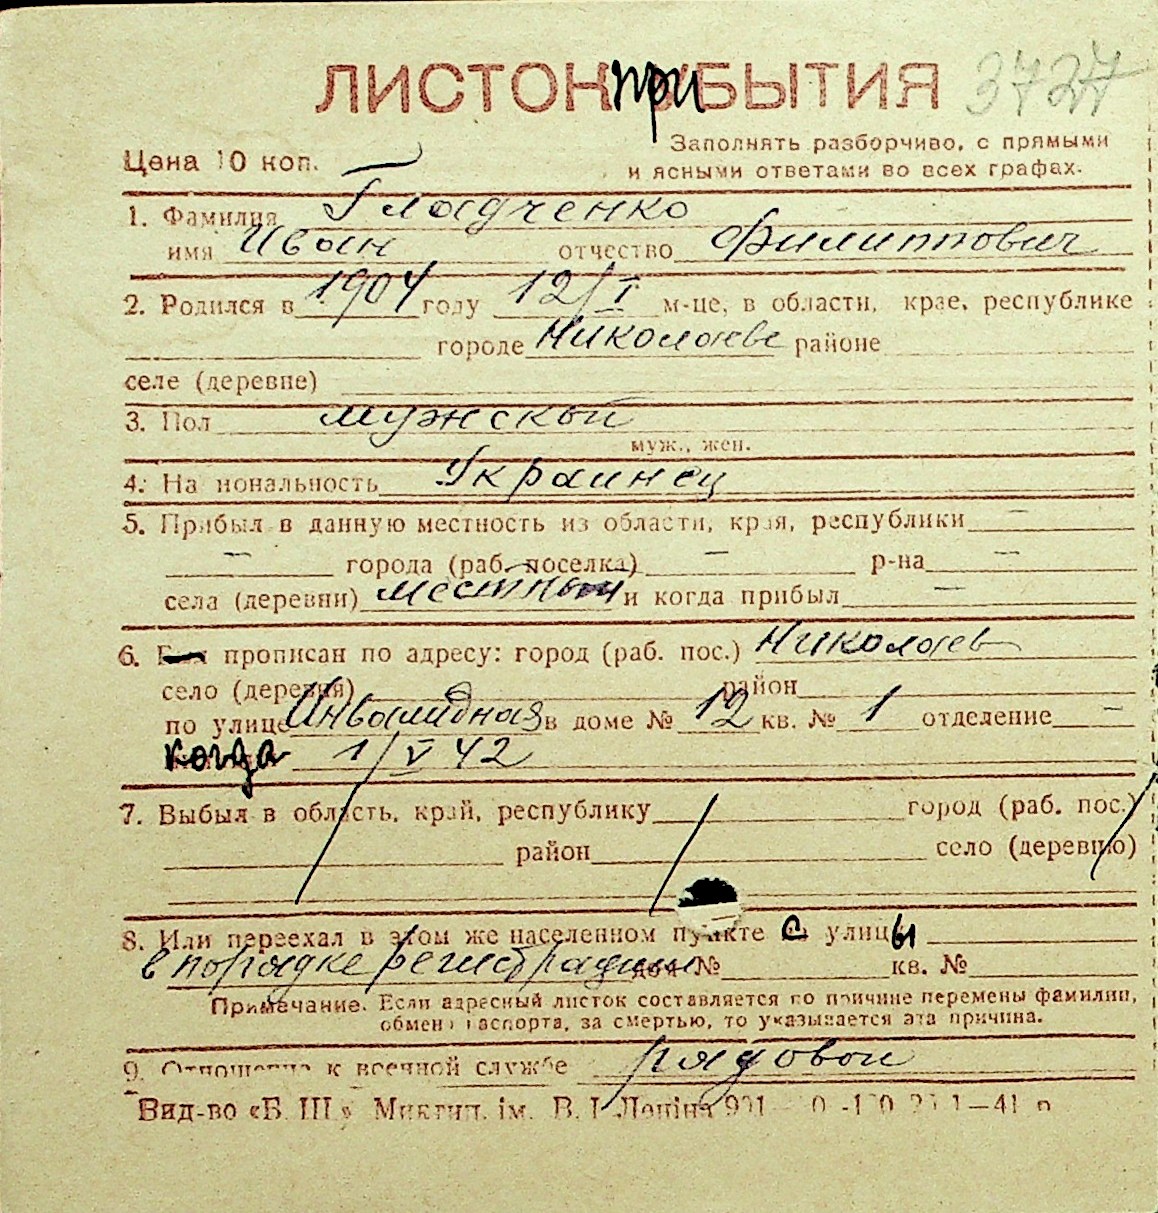 ЛИСТОК при БЫТИЯ 3727
Цена 10 коп. Заполнять разборчиво, с прямыми
и ясными ответами во всех графах.
1. Фамилия Гладченко
имя Иван отчество Филиппович
2. Родился в 1904 году 12/I м-це, в области, крае, республике
городе Николаеве районе
селе (деревне)
3. Пол мужской
муж., жен.
4. На нональность Украинец
5. Прибыл в данную местность из области, края, республики —
— города (раб. поселка) — р-на —
села (деревни) местный и когда прибыл —
6. прописан по адресу: город (раб. пос.) Николаев
село (деревня) район
по улице Инвалидная в доме № 12 кв. № 1 отделение —
когда 1/V 42
7. Выбыл в область, край, республику город (раб. пос.)
район село (деревню)
8. Или переехал в этом же населенном пункте с улицы
в порядке регистрации дом № кв. №
Примечание. Если адресный листок составляется по причине перемены фамилии,
обмена паспорта, за смертью, то указывается эта причина.
9. Отношение к военной службе рядовой
Вид-во «Б. Ш.» Миктип. ім. В. І. Леніна